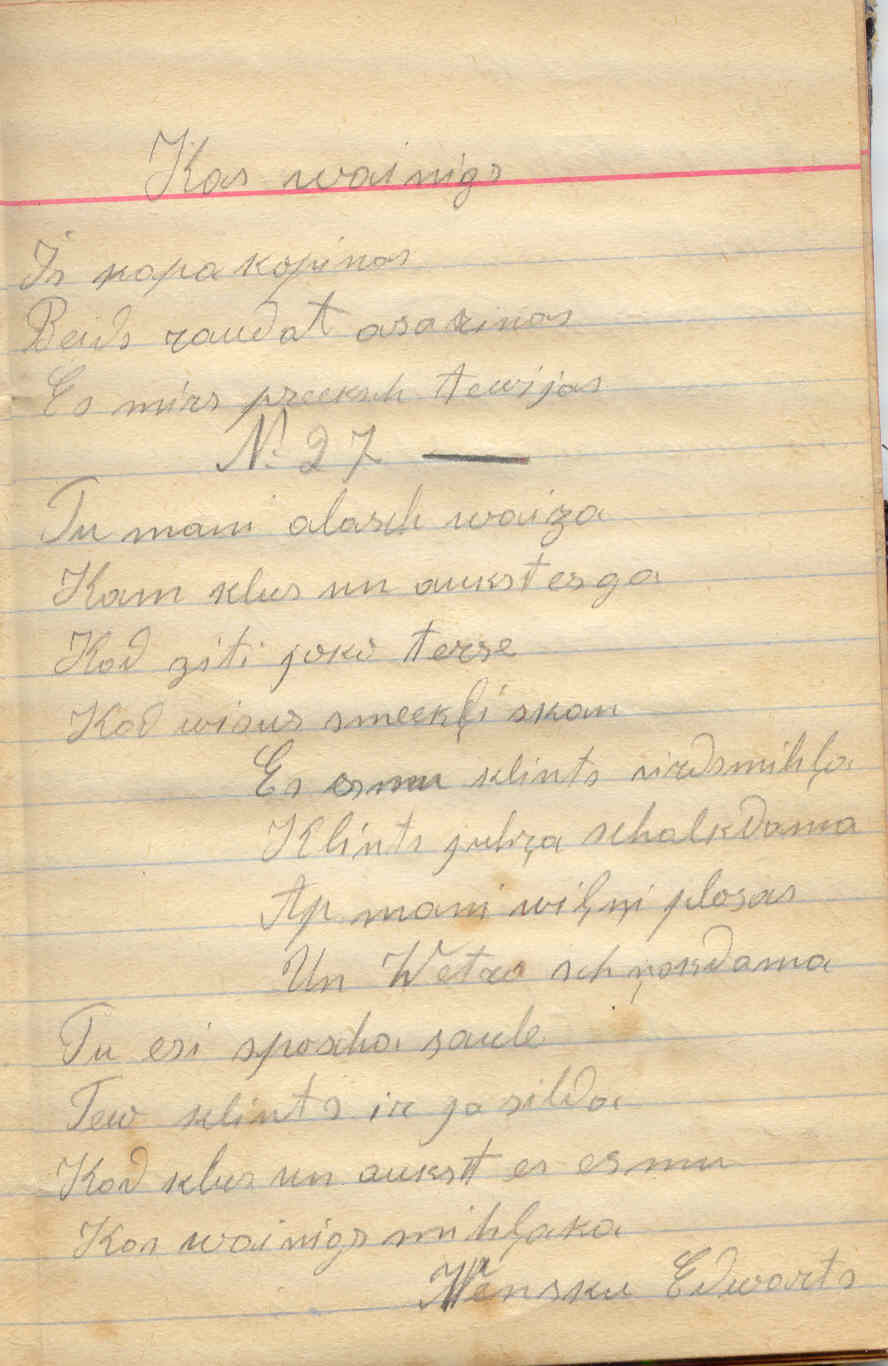 Kas wainigs
Is kapa kopinas
Beids raudat asarinas
Es mirs preeksch tewijas
№ 27 —
Tu mani alasch waiza
Kam klus un aukst es ga
Kad ziti joko terse
Kad wisur smeekļi skan
Es esmu klints sirdsmihļa
Klints juhŗa schalkdama
Ap mani wiļņi plosas
Un Wetra schņakdama
Tu esi sposcha saule
Tew klints ir ja silda
Kad klus un aukst es esmu
Kas wainigs mihļaka
Edwarts